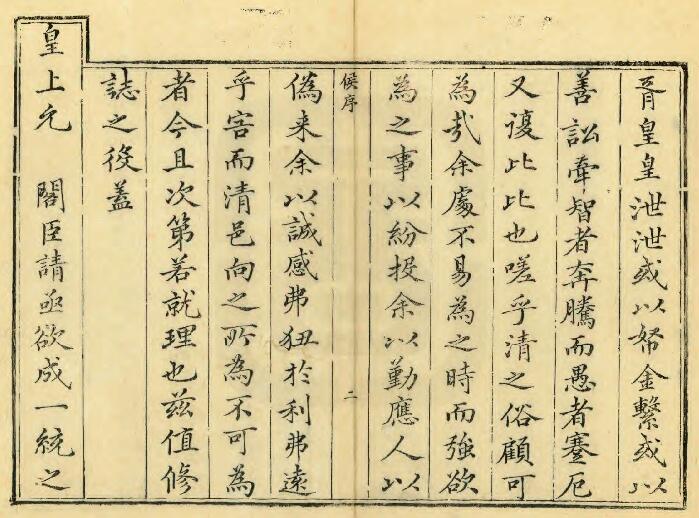 胥皇皇泄泄或以帑金繫或以
善訟牽智者奔騰而愚者蹇厄
又復比比也嗟乎清之俗顧可
為哉余處不易為之時而強欲
為之事以紛投余以勤應人以
候序
二
偽来余以誠感弗狃於利弗遠
乎害而清邑向之所為不可為
者今且次第若就理也茲值修
誌之役蓋
皇上允 閣臣請亟欲成一統之